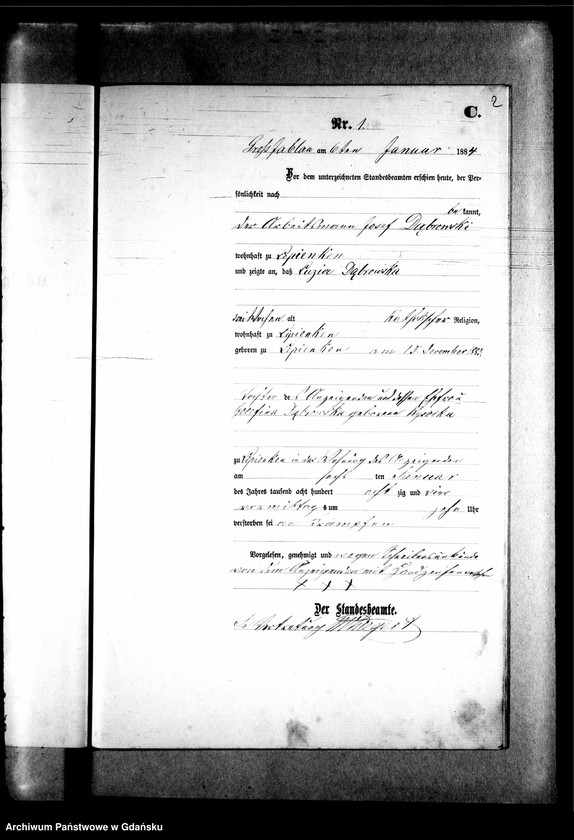 2
C.
Nr. 1.
Groß Jablau am 6ten Januar 1884
Vor dem unterzeichneten Standesbeamten erschien heute, der Per-
sönlichkeit nach
bekannt,
der Arbeitsmann Josef Dąbrowski
wohnhaft zu Lipienken
und zeigte an, daß Luzia Dąbrowska
drei Wochen alt katholischer Religion,
wohnhaft zu Lipienken
geboren zu Lipienken am 15. December 83.
Tochter des Anzeigenden und dessen Ehefrau
Josefina Dąbrowska geborene
zu Lipienken in der Wohnung des Anzeigenden
am ten Januar
des Jahres tausend acht hundert acht zig und vier
vormittags um zehn Uhr
verstorben sei an Kraempfen
Vorgelesen, genehmigt und wegen Schreibensunkunde
von dem Anzeigenden mit Handzeichen versehen
+ + +
Der Standesbeamte.
In Vertretung
Archiwum Państwowe w Gdańsku